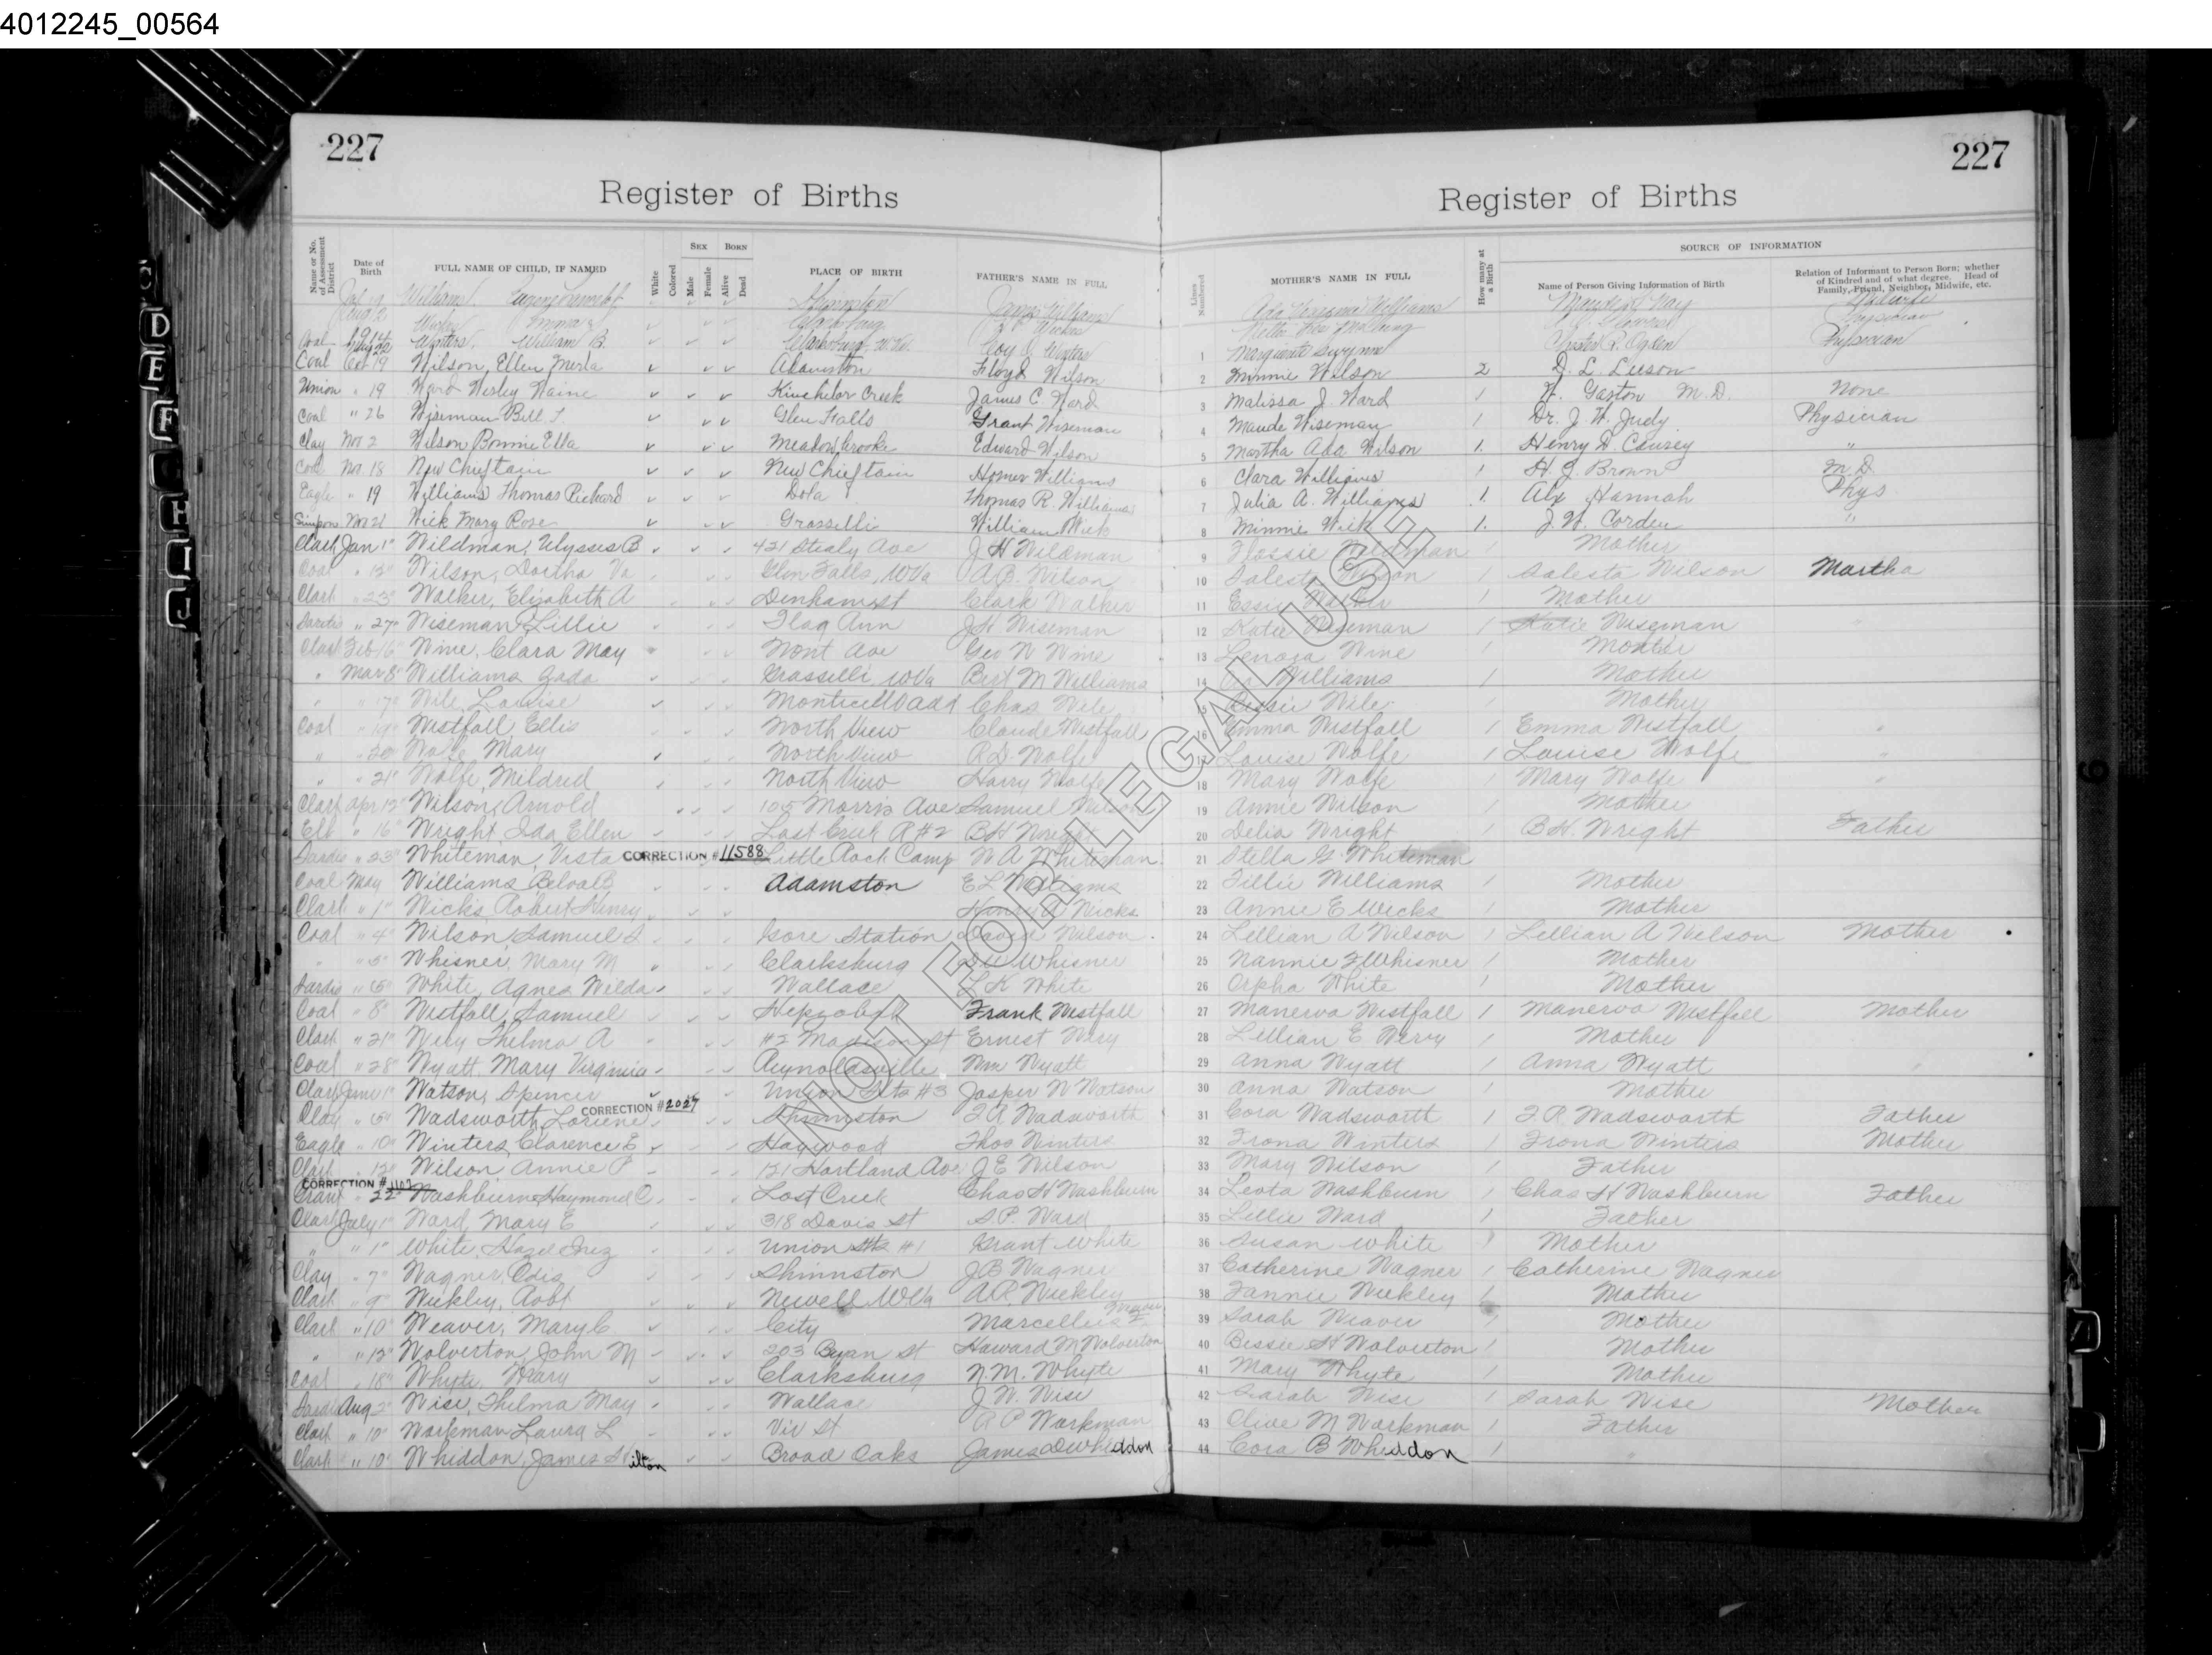 4012245_00564
227
227
Register of Births
Register of Births
Name or No. of Assessment District
Date of Birth
FULL NAME OF CHILD, IF NAMED
White
Colored
SEX
Male
Female
BORN
Alive
Dead
PLACE OF BIRTH
FATHER'S NAME IN FULL
Lines Numbered
MOTHER'S NAME IN FULL
How many at a Birth
SOURCE OF INFORMATION
Name of Person Giving Information of Birth
Relation of Informant to Person Born; whether of Kindred and of what degree. Head of Family, Friend, Neighbor, Midwife, etc.
Williams Shinnston Williams Ada Virginia Williams
Coal Winters, William B. Clarksburg W.Va. Roy Winters 1 Marguerite Gwynne Chester R. Ogden Physician
Coal Oct 19 Wilson, Ellen Merla Adamston Floyd Wilson 2 Minnie Wilson 2 D. L. Leeson
Union " 19 Ward Wesley Waine Kinchelor Creek James C. Ward 3 Malissa J. Ward 1 W. Gaston M.D. None
Coal " 26 Wiseman Bill Glen Falls Grant Wiseman 4 Maude Wiseman 1 Dr. J. W. Judy Physician
Clay Nov 2 Wilson Bonnie Ella Meadowbrooke Edward Wilson 5 Martha Ada Wilson 1. Henry D Causey "
Coal Nov. 18 New Chieftain New Chieftain Homer Williams 6 Clara Williams 1 H. J. Brown M.D
Eagle " 19 Williams Thomas Richard Dola Thomas R. Williams 7 Julia A. Williams 1. Alx Hannah Phys
Simpson Nov 21 Wick Mary Rose Grasselli William Wick 8 Minnie Wick 1. J. W. Corder "
Clark Jan 1" Wildman, Ulysses B 421 Stealy Ave J H Wildman 9 Flossie Wildman 1 Mother
Coal " 12" Wilson, Doitha Va Glen Falls, W Va A.B. Wilson 10 Salesta Wilson 1 Salesta Wilson Martha
Clark " 23" Walker, Elizabeth A Denham st Clark Walker 11 Essie Walker 1 Mother
Sardis " 27" Wiseman, Lillie Flag Run J H Wiseman 12 Katie Wiseman 1 Katie Wiseman "
Clark Feb 16" Wine, Clara May Mont Ave Geo W Wine 13 Lenora Wine 1 Mother
" Mar 8" Williams Zada Grasselli, W Va Bert M Williams 14 Williams 1 Mother
" " 17" Wile, Louise Monticello add Chas Wile 15 Bessie Wile 1 Mother
Coal " 19" Westfall, Ellis North View Claude Westfall 16 Emma Westfall 1 Emma Westfall "
" " 20" Wolfe, Mary North View R.D. Wolfe 17 Louise Wolfe 1 Louise Wolfe "
" " 21" Wolfe, Mildred North View Harry Wolfe 18 Mary Wolfe 1 Mary Wolfe "
Clark Apr 12" Wilson, Arnold 105 Morris Ave Samuel Wilson 19 Annie Wilson 1 Mother
Elk " 16" Wright, Ida Ellen Lost Creek R #2 B H Wright 20 Delia Wright 1 B H. Wright Father
Sardis " 23" Whiteman, Vista CORRECTION # 11588 Little Rock Camp W A Whiteman 21 Stella G. Whiteman
Coal May Williams Adamston E L Williams 22 Tillie Williams 1 Mother
Clark " 1" Wicks, Robert Henry Henry A Wicks 23 Annie E Wicks 1 Mother
Coal " 4" Wilson, Samuel L Gore Station David Wilson 24 Lillian A Wilson 1 Lillian A Wilson Mother
" " 5" Whisner, Mary M Clarksburg Whisner 25 Nannie F Whisner 1 Mother
Sardis " 6" White, Agnes Wilda Wallace L K White 26 Orpha White 1 Mother
Coal " 8" Westfall, Samuel Hepzobah Frank Westfall 27 Manerva Westfall 1 Manerva Westfall Mother
Clark " 21" Wery Thelma A #2 Madison st Ernest Wery 28 Lillian E Wery 1 Mother
Coal " 28" Wyatt, Mary Virginia Reynoldsville Wm Wyatt 29 Anna Wyatt 1 Anna Wyatt "
Clark June 1" Watson, Spencer Union Hts #3 Jasper W Watson 30 Anna Watson 1 Mother
Clay " 6" Wadsworth, Loriene CORRECTION # 2027 Shinnston F.R. Wadsworth 31 Cora Wadsworth 1 F. R. Wadsworth Father
Eagle " 10" Winters, Clarence E Haywood Thos Winters 32 Frona Winters 1 Frona Winters Mother
Clark " 12" Wilson Annie P 121 Hartland Ave J. E Wilson 33 Mary Wilson 1 Father
CORRECTION # 1102
Grant " 22" Washburn, Haymond C. Lost Creek Chas H Washburn 34 Leota Washburn 1 Chas H Washburn Father
Clark July 1" Ward, Mary E 318 Davis st S.P. Ward 35 Lillie Ward 1 Father
" " 1" White, Hazel Inez Union Hts #1 Grant White 36 Susan White 1 Mother
Clay " 7" Wagner, Odis Shinnston J B Wagner 37 Catherine Wagner 1 Catherine Wagner
Clark " 9" Weekley, Robt Newell W Va A.R. Weekley 38 Fannie Weekley 1 Mother
Clark " 10" Weaver, Mary C City Marcellus F Weaver 39 Sarah Weaver 1 Mother
" " 12" Wolverton, John M 203 Byan st Howard M Wolverton 40 Bessie H Wolverton 1 Mother
Coal " 18" Whyte, Mary Clarksburg N. M. Whyte 41 Mary Whyte 1 Mother
Sardis Aug 2" Wise, Thelma May Wallace J. W. Wise 42 Sarah Wise 1 Sarah Wise Mother
Clark " 10" Workman Laura L Viv St A P Workman 43 Olive M Workman 1 Father
Clark " 10" Whiddon, James Hilton Broad Oaks James D Whiddon 44 Cora B Whiddon 1 "
NOT FOR LEGAL USE
D
E
F
G
H
I
J